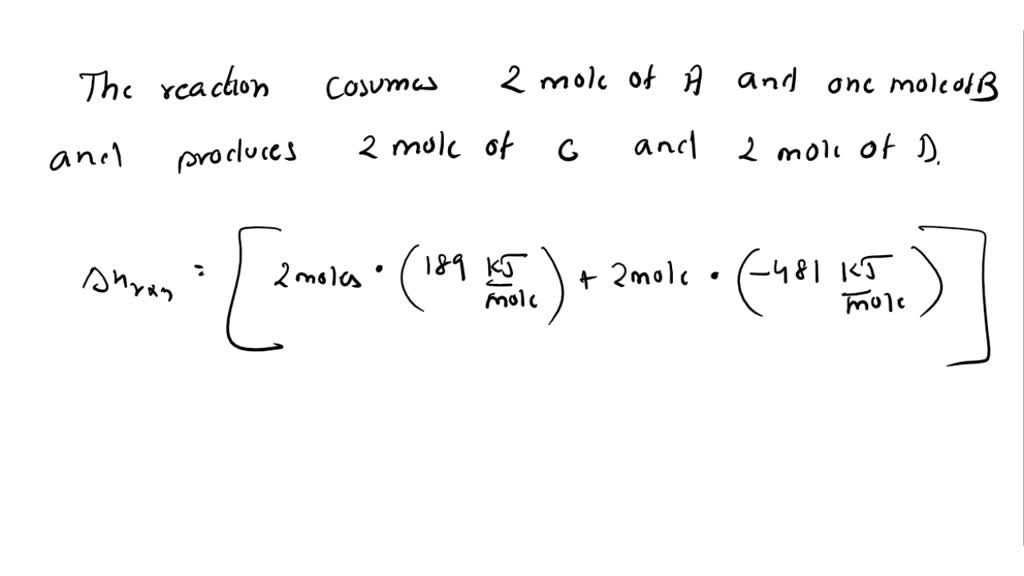 The reaction cosumes 2 mole of A and one mole of B
and produces 2 mole of C and 2 mole of D.
ΔHrxn = [2 moles • (189 KJ/mole) + 2 mole • (-481 KJ/mole)]